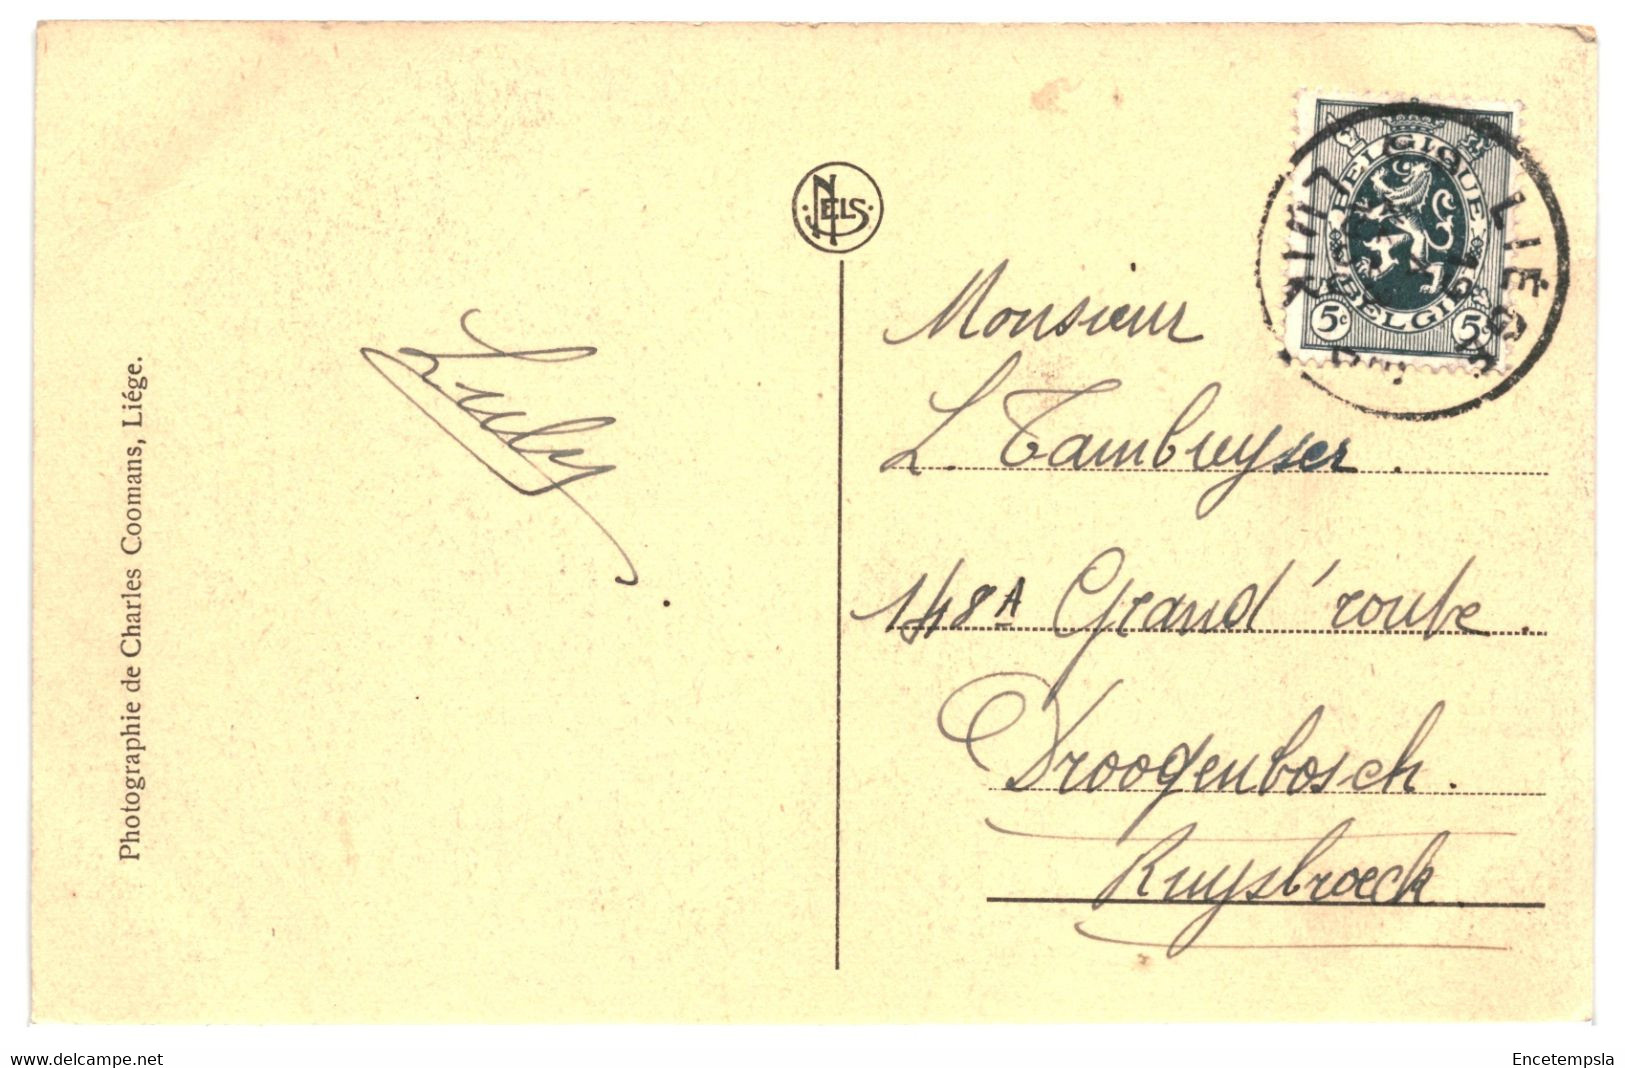 Photographie de Charles Coomans, Liége.
NELS
Luly
Monsieur
L. Tambuyser.
148A Grand'route.
Droogenbosch.
Ruysbroeck.
BELGIQUE
BELGIË
5c 5c
LIÈGE
LUIK
www.delcampe.net
Encetempsla